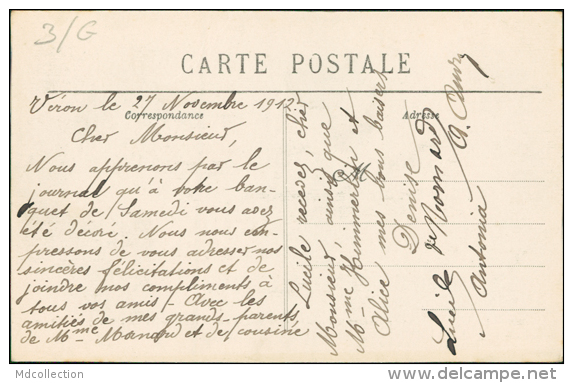 3/G
CARTE POSTALE
Correspondance
Adresse
Véron le 27 Novembre 1912
Cher Monsieur,
Nous apprenons par le
journal qu'à votre ban-
quet de Samedi vous avez
été décoré. Nous nous em-
pressons de vous adresser nos
sincères félicitations et de
joindre nos compliments à
tous vos amis - Avec les
amitiés de mes grands-parents,
de Mme Mornard et de cousine
Lucile recevez, cher
Monsieur, ainsi que
Mme et
Alice mes bons baisers
Denise
Lucile
Antonia
Mdcollection
www.delcampe.net